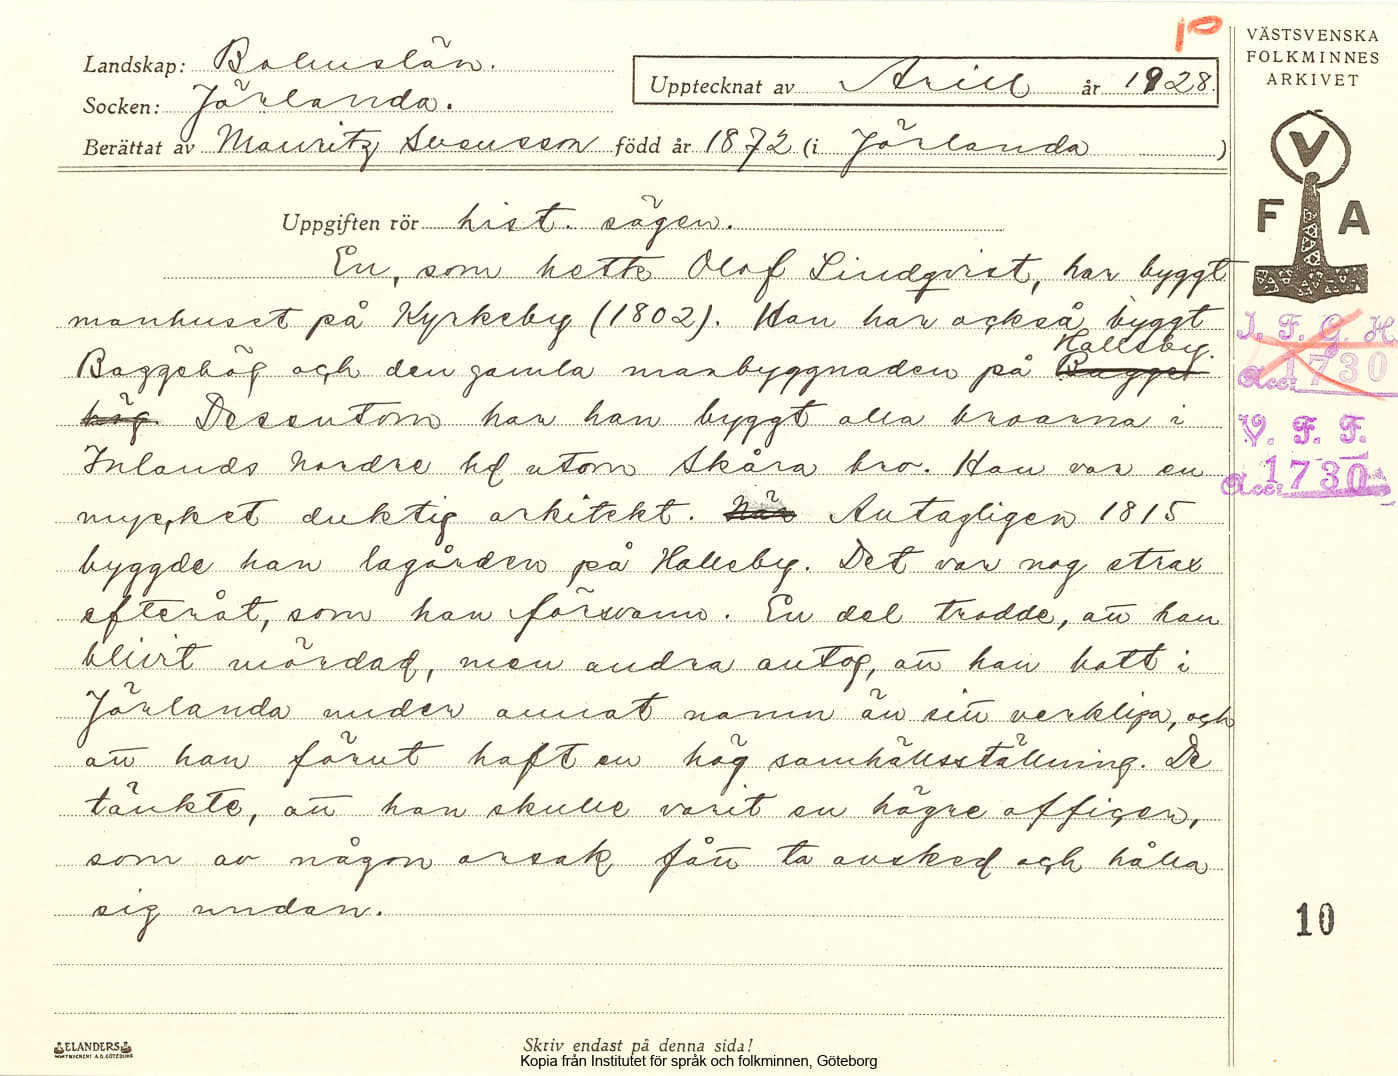 10
VÄSTSVENSKA
FOLKMINNES
ARKIVET
Landskap: Bohuslän.
Upptecknat av Arill år 1928.
Socken: Jörlanda.
Berättat av Mauritz Svensson född år 1872 (i Jörlanda )
V
F A
Uppgiften rör hist. sägen.
En, som hette Olof Lindqvist, har byggt
manhuset på Kyrkeby (1802). Han har också byggt
Hallsby.
Baggehög och den gamla manbyggnaden på Bagge
hög Dessutom har han byggt alla broarna i
Inlands Nordre hd utom Skåra bro. Han var en
mycket duktig arkitekt. När Antagligen 1815
byggde han lagården på Hallsby. Det var nog strax
efteråt, som han försvann. En del trodde, att han
blivit mördad, men andra antog, att han bott i
Jörlanda under annat namn än sitt verkliga, och
att han förut haft en hög samhällsställning. De
tänkte, att han skulle varit en högre officer,
som av någon orsak fått ta avsked och hålla
sig undan.
I. F. G. H.
Acc. 1730
V. F. F.
Acc. 1730
10
ELANDERS
BOKTRYCKERI A.B. GÖTEBORG
Skriv endast på denna sida!
Kopia från Institutet för språk och folkminnen, Göteborg